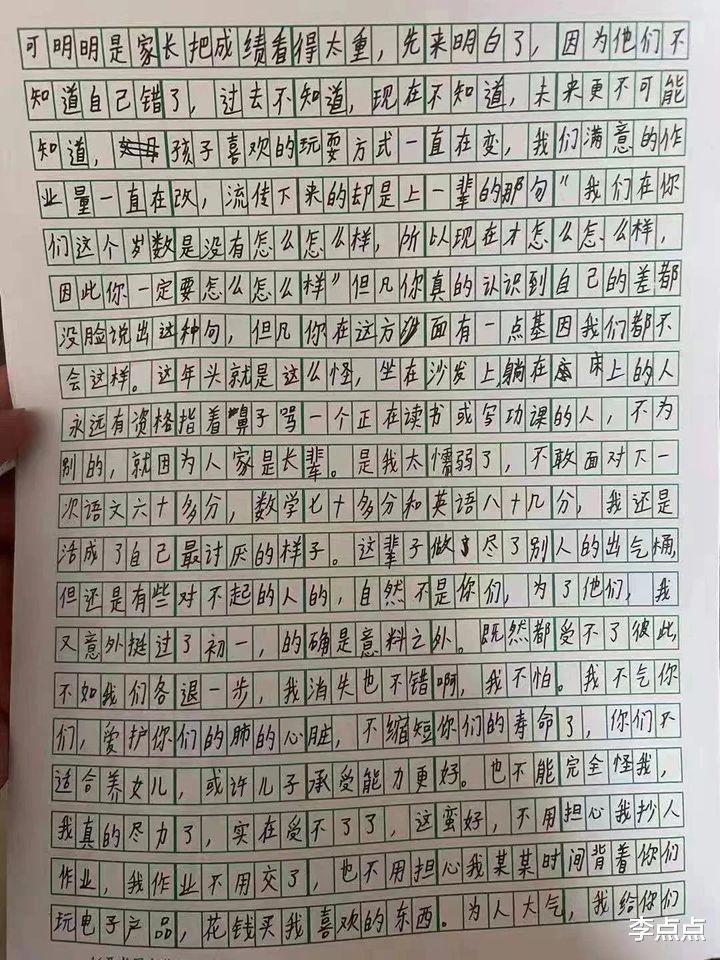 可明明是家长把成绩看得太重，先来明白了，因为他们不
知道自己错了，过去不知道，现在不知道，未来更不可能
知道，孩子喜欢的玩耍方式一直在变，我们满意的作
业量一直在改，流传下来的却是上一辈的那句"我们在你
们这个岁数是没有怎么怎么样，所以现在才怎么怎么样，
因此你一定要怎么怎么样"但凡你真的认识到自己的差都
没脸说出这种句，但凡你在这方面有一点基因我们都不
会这样。这年头就是这么怪，坐在沙发上躺在床上的人
永远有资格指着鼻子骂一个正在读书或写功课的人，不为
别的，就因为人家是长辈。是我太懦弱了，不敢面对下一
次语文六十多分，数学七十多分和英语八十几分，我还是
活成了自己最讨厌的样子。这辈子做尽了别人的出气桶，
但还是有些对不起的人的，自然不是你们，为了他们，我
又意外挺过了初一，的确是意料之外。既然都受不了彼此，
不如我们各退一步，我消失也不错啊，我不怕。我不气你
们，爱护你们的肺的心脏，不缩短你们的寿命了，你们不
适合养女儿，或许儿子承受能力更好。也不能完全怪我，
我真的尽力了，实在受不了了，这蛮好，不用担心我抄人
作业，我作业不用交了，也不用担心我某某时间背着你们
玩电子产品，花钱买我喜欢的东西。为人大气，我给你们
李点点